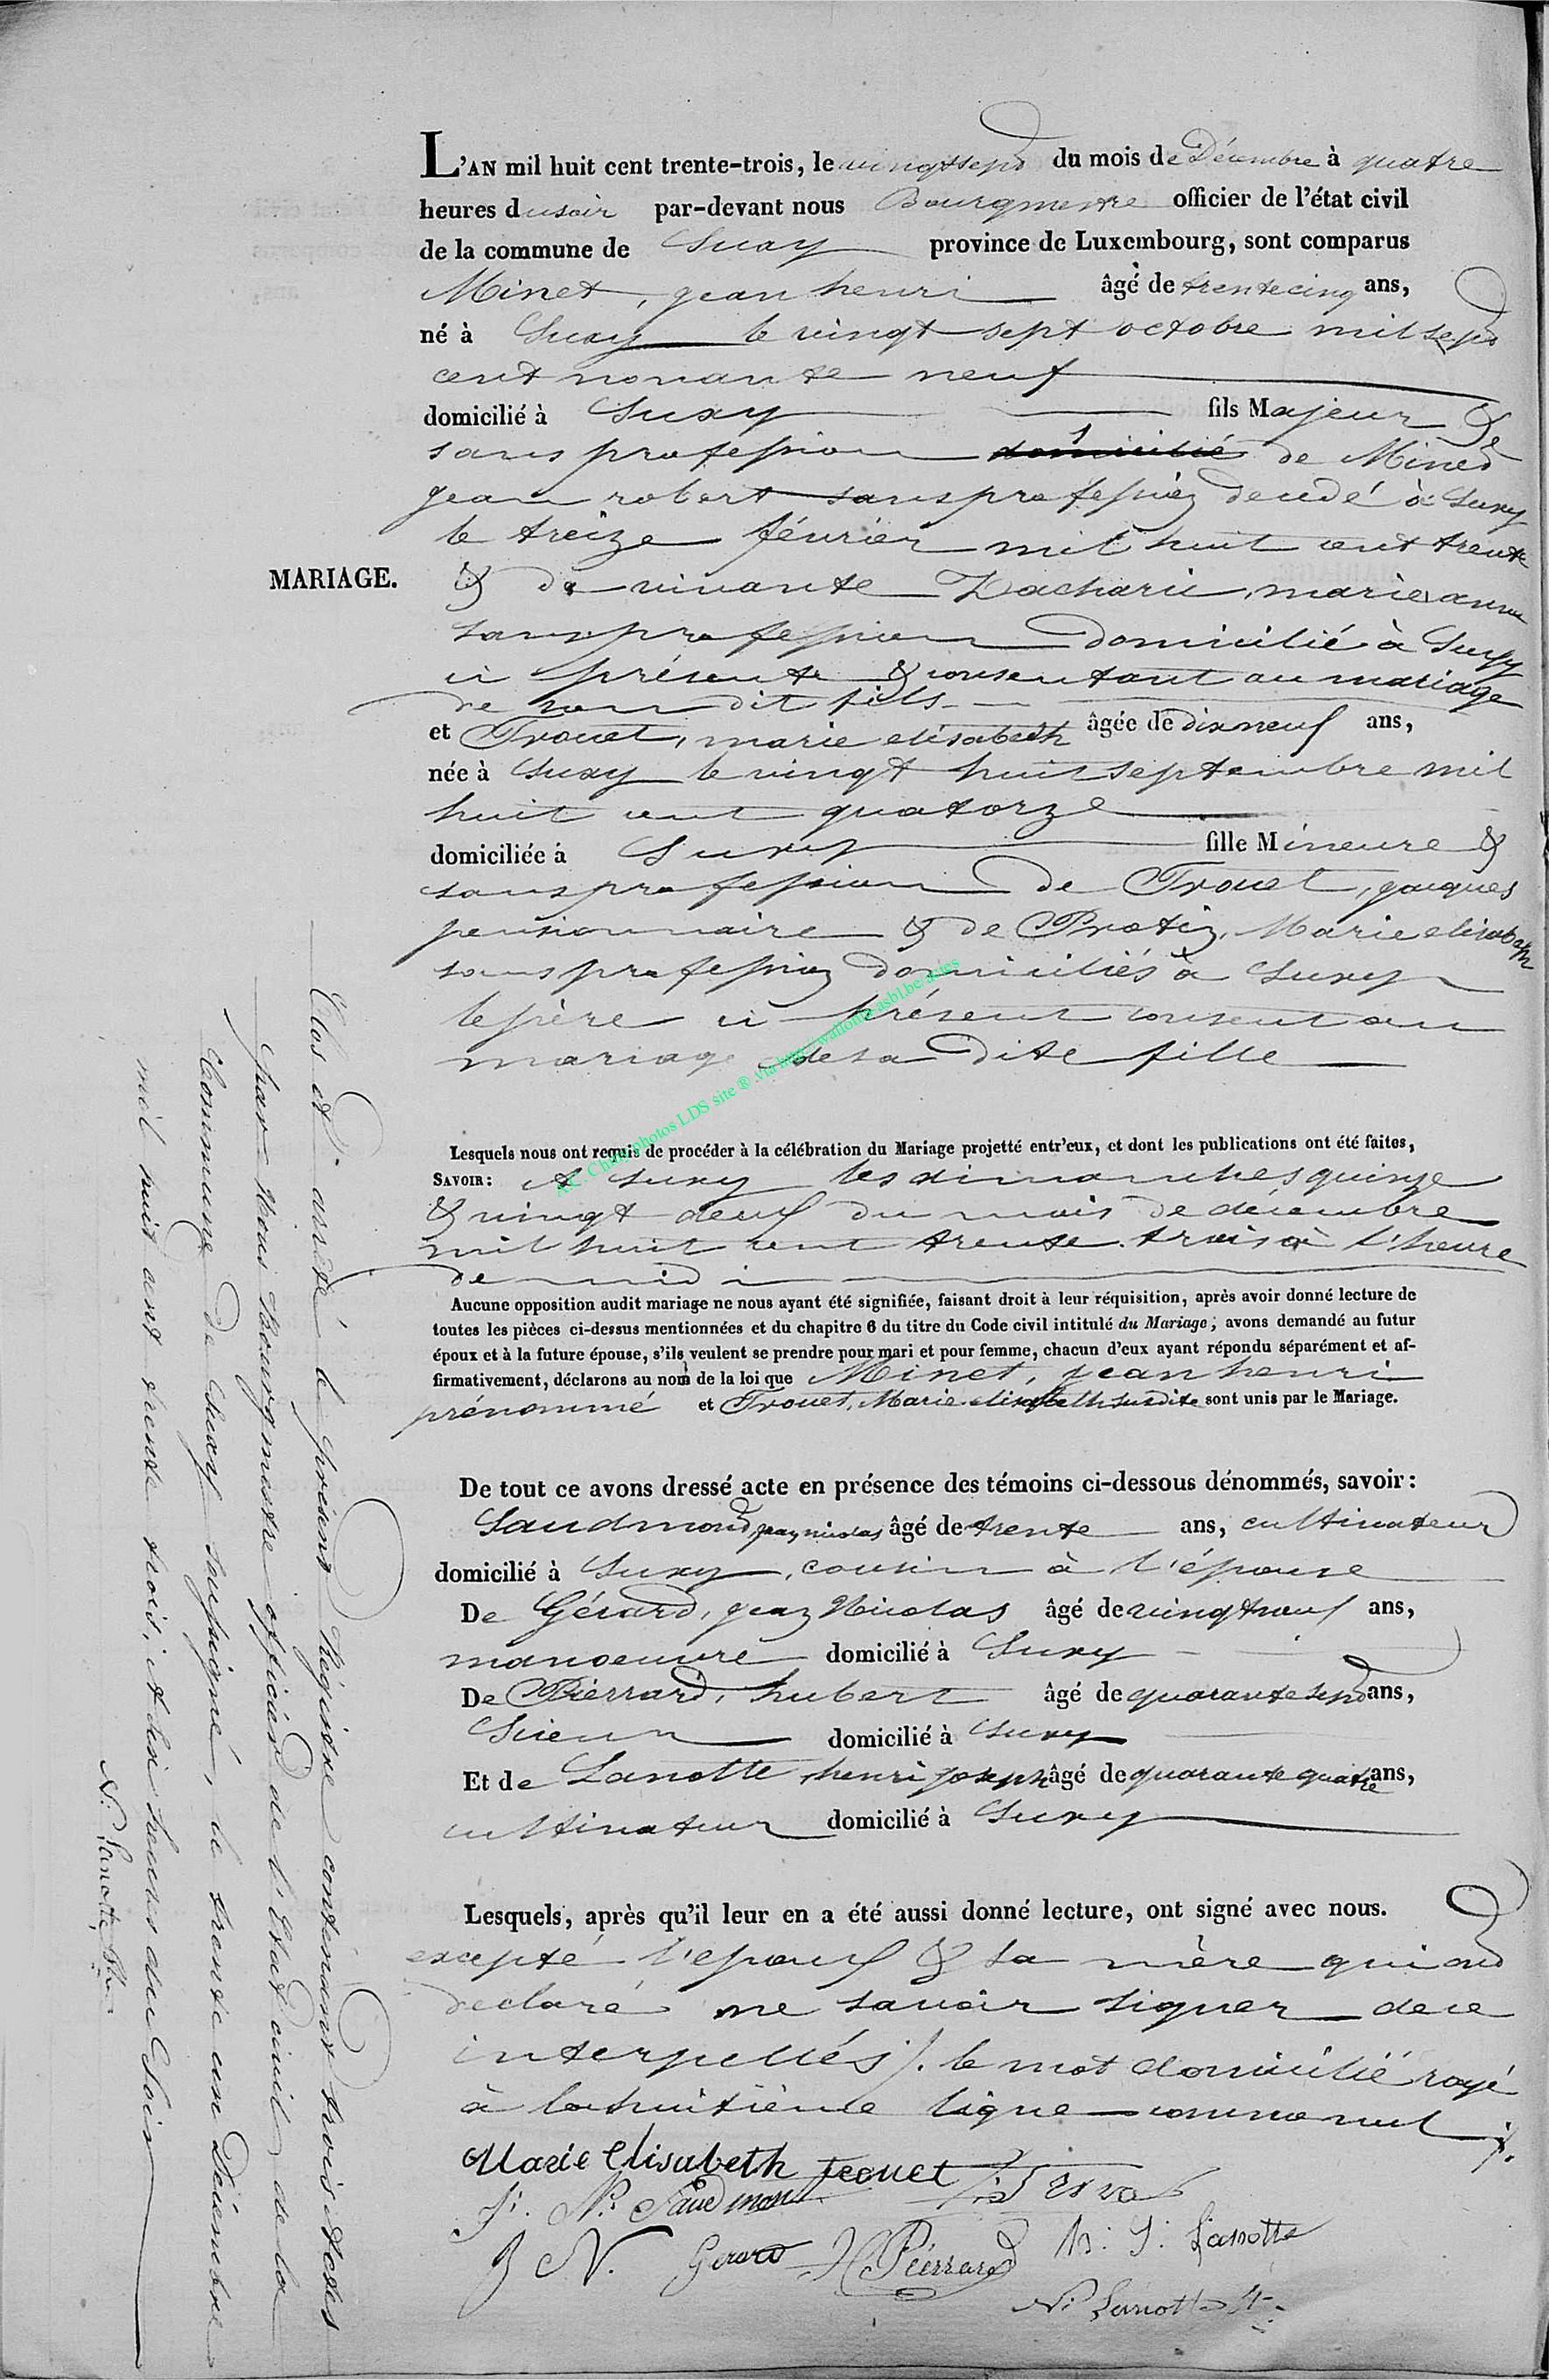 L'AN mil huit cent trente-trois, le vingtsept du mois de Décembre à quatre
heures du soir par-devant nous Bourgmestre officier de l'état civil
de la commune de Suxy province de Luxembourg, sont comparus
Minet, jean henri âgé de trentecinq ans,
né à Suxy le vingt sept octobre mil sept
cent nonante neuf
domicilié à Suxy fils Majeur &
sans profession domicilié de Minet
jean robert sans profession décédé à Suxy
le treize février mil huit cent trente
MARIAGE.
& de vivante Zacharie, marie anne
sans profession domicilié à Suxy
ci présente & consentant au mariage
de son dit fils
et Trouet, marie elisabeth âgée de dixneuf ans,
née à Suxy le vingt huit septembre mil
huit cent quatorze
domiciliée à Suxy fille Mineure &
sans profession de Trouet, jacques
pensionnaire & de Protin, Marie elisabeth
sans profession domiciliés à Suxy
le père ci présent consent au
mariage de sa dite fille
A.C. Chiny photos LDS site ® via http://wallonia-asbl.be/actes
Lesquels nous ont requis de procéder à la célébration du Mariage projetté entr'eux, et dont les publications ont été faites,
SAVOIR: A Suxy les dimanches quinze
& vingt deux du mois de décembre
mil huit cent trente trois à l'heure
de midi
Aucune opposition audit mariage ne nous ayant été signifiée, faisant droit à leur réquisition, après avoir donné lecture de
toutes les pièces ci-dessus mentionnées et du chapitre 6 du titre du Code civil intitulé du Mariage; avons demandé au futur
époux et à la future épouse, s'ils veulent se prendre pour mari et pour femme, chacun d'eux ayant répondu séparément et af-
firmativement, déclarons au nom de la loi que Minet, jean henri
prénommé et Trouet, Marie elisabeth susdite sont unis par le Mariage.
De tout ce avons dressé acte en présence des témoins ci-dessous dénommés, savoir:
Saudmont, jean nicolas âgé de trente ans, cultivateur
domicilié à Suxy, cousin à l'épouse
De Gérard, jean Nicolas âgé de vingtneuf ans,
manoeuvre domicilié à Suxy
De Pierrard, hubert âgé de quarante sept ans,
Scieur domicilié à Suxy
Et de Lanotte, henri joseph âgé de quarante quatre ans,
cultivateur domicilié à Suxy
Lesquels, après qu'il leur en a été aussi donné lecture, ont signé avec nous.
excepté l'epoux & sa mère qui ont
declaré ne savoir signer de ce
interpellés /. le mot domicilié rayé
à la huitième ligne comme nul ./.
Marie Elisabeth trouet
J. N. Saudmont
J N. Gerard H Pierrard H: J: Lanotte
N: Lanotte
Clos et arreté le présent Régistre contenant trois actes
par Nous Bourgmestre officier de l'Etat civil de la
Commune de Suxy soussigné, le trente un Décembre
mil huit cent trente trois, à six heures du Soir
N: Lanotte